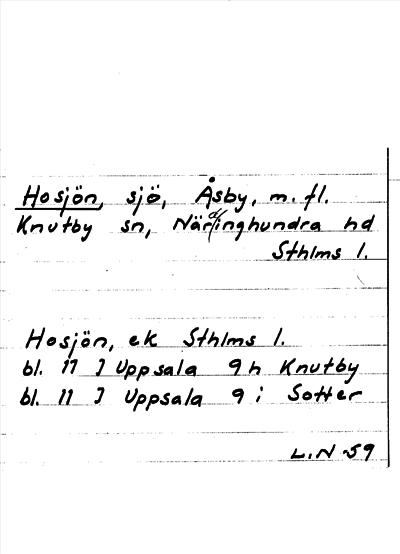 Hosjön, sjö, Åsby, m. fl.
Knutby sn, Närdinghundra hd
Sthlms l.
Hosjön, ek Sthlms l.
bl. 11 J Uppsala 9 h Knutby
bl. 11 J Uppsala 9 i Sotter
L.N -59